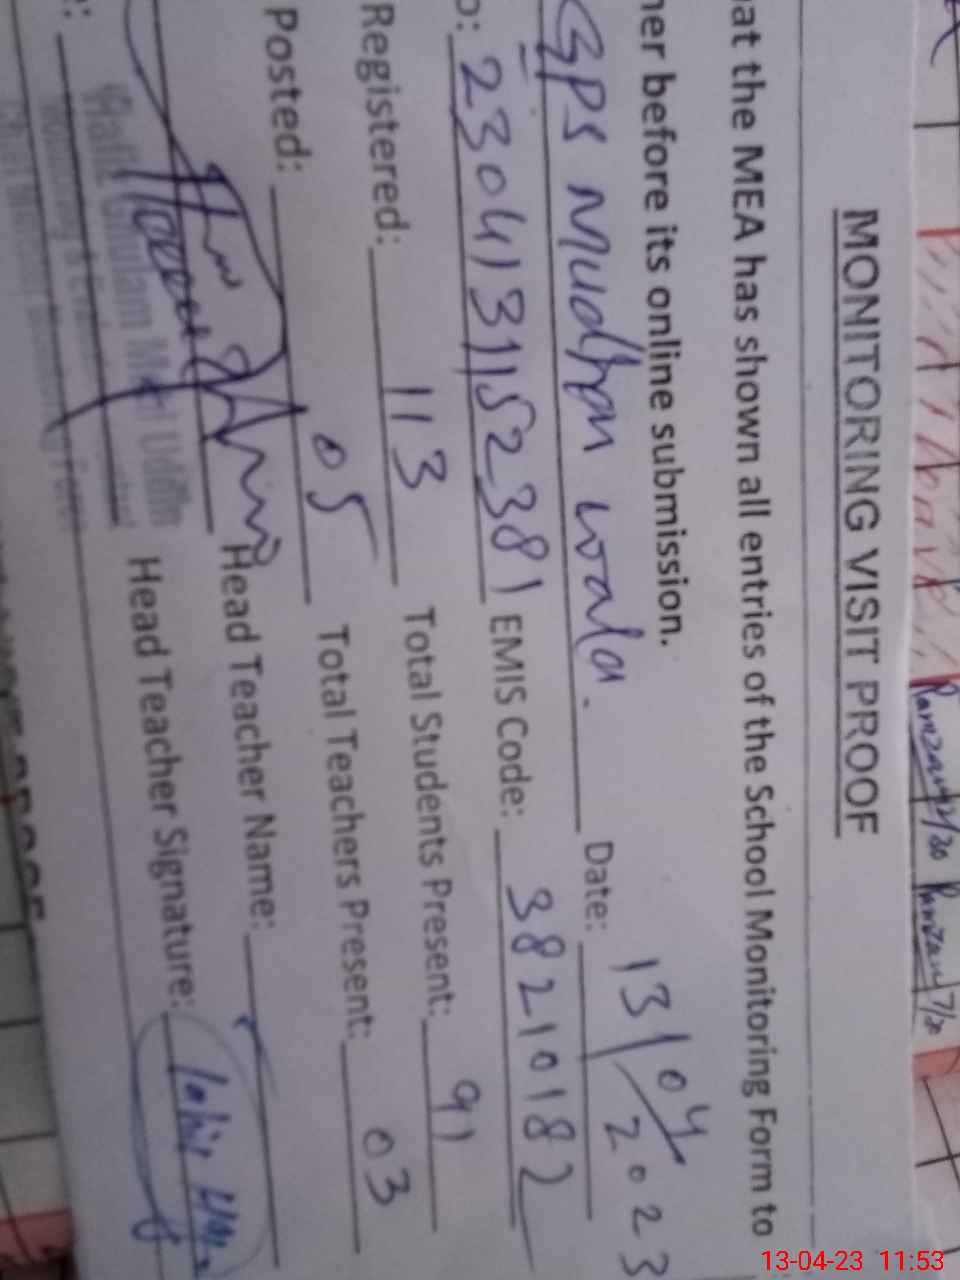 MONITORING VISIT PROOF
at the MEA has shown all entries of the School Monitoring Form to
her before its online submission.
GPS Mudhan wala. Date: 13/04/2023
o: 2304131152381 EMIS Code: 38210182
Registered: 113 Total Students Present: 91
Posted: 05 Total Teachers Present: 03
Head Teacher Name:
Head Teacher Signature:
Ramzan 7/20
13-04-23 11:53